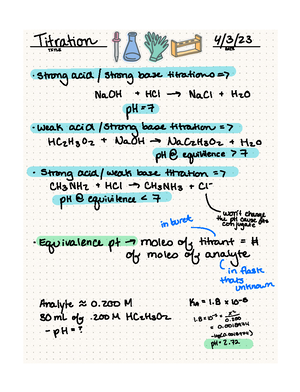 Titration
TITLE
4/3/23
DATE
· Strong acid / strong base titrations =>
NaOH + HCl → NaCl + H2O
pH = 7
· Weak acid / strong base titration =>
HC2H3O2 + NaOH → NaC2H3O2 + H2O
pH @ equivilence > 7
· Strong acid / weak base titration =>
CH3NH2 + HCl → CH3NH3 + Cl⁻
pH @ equivilence < 7
won't change
the pH cause its
conjugate
in buret
· Equivalence pt → moles of titrant = #
of moles of analyte
in flask
thats
unknown
Analyte ≈ 0.200 M
30 mL of .200 M HC2H3O2
- pH = ?
Ka = 1.8 x 10⁻⁵
1.8 x 10⁻⁵ = x²
0.200
= 0.0018974
-log(0.0018974)
pH = 2.72